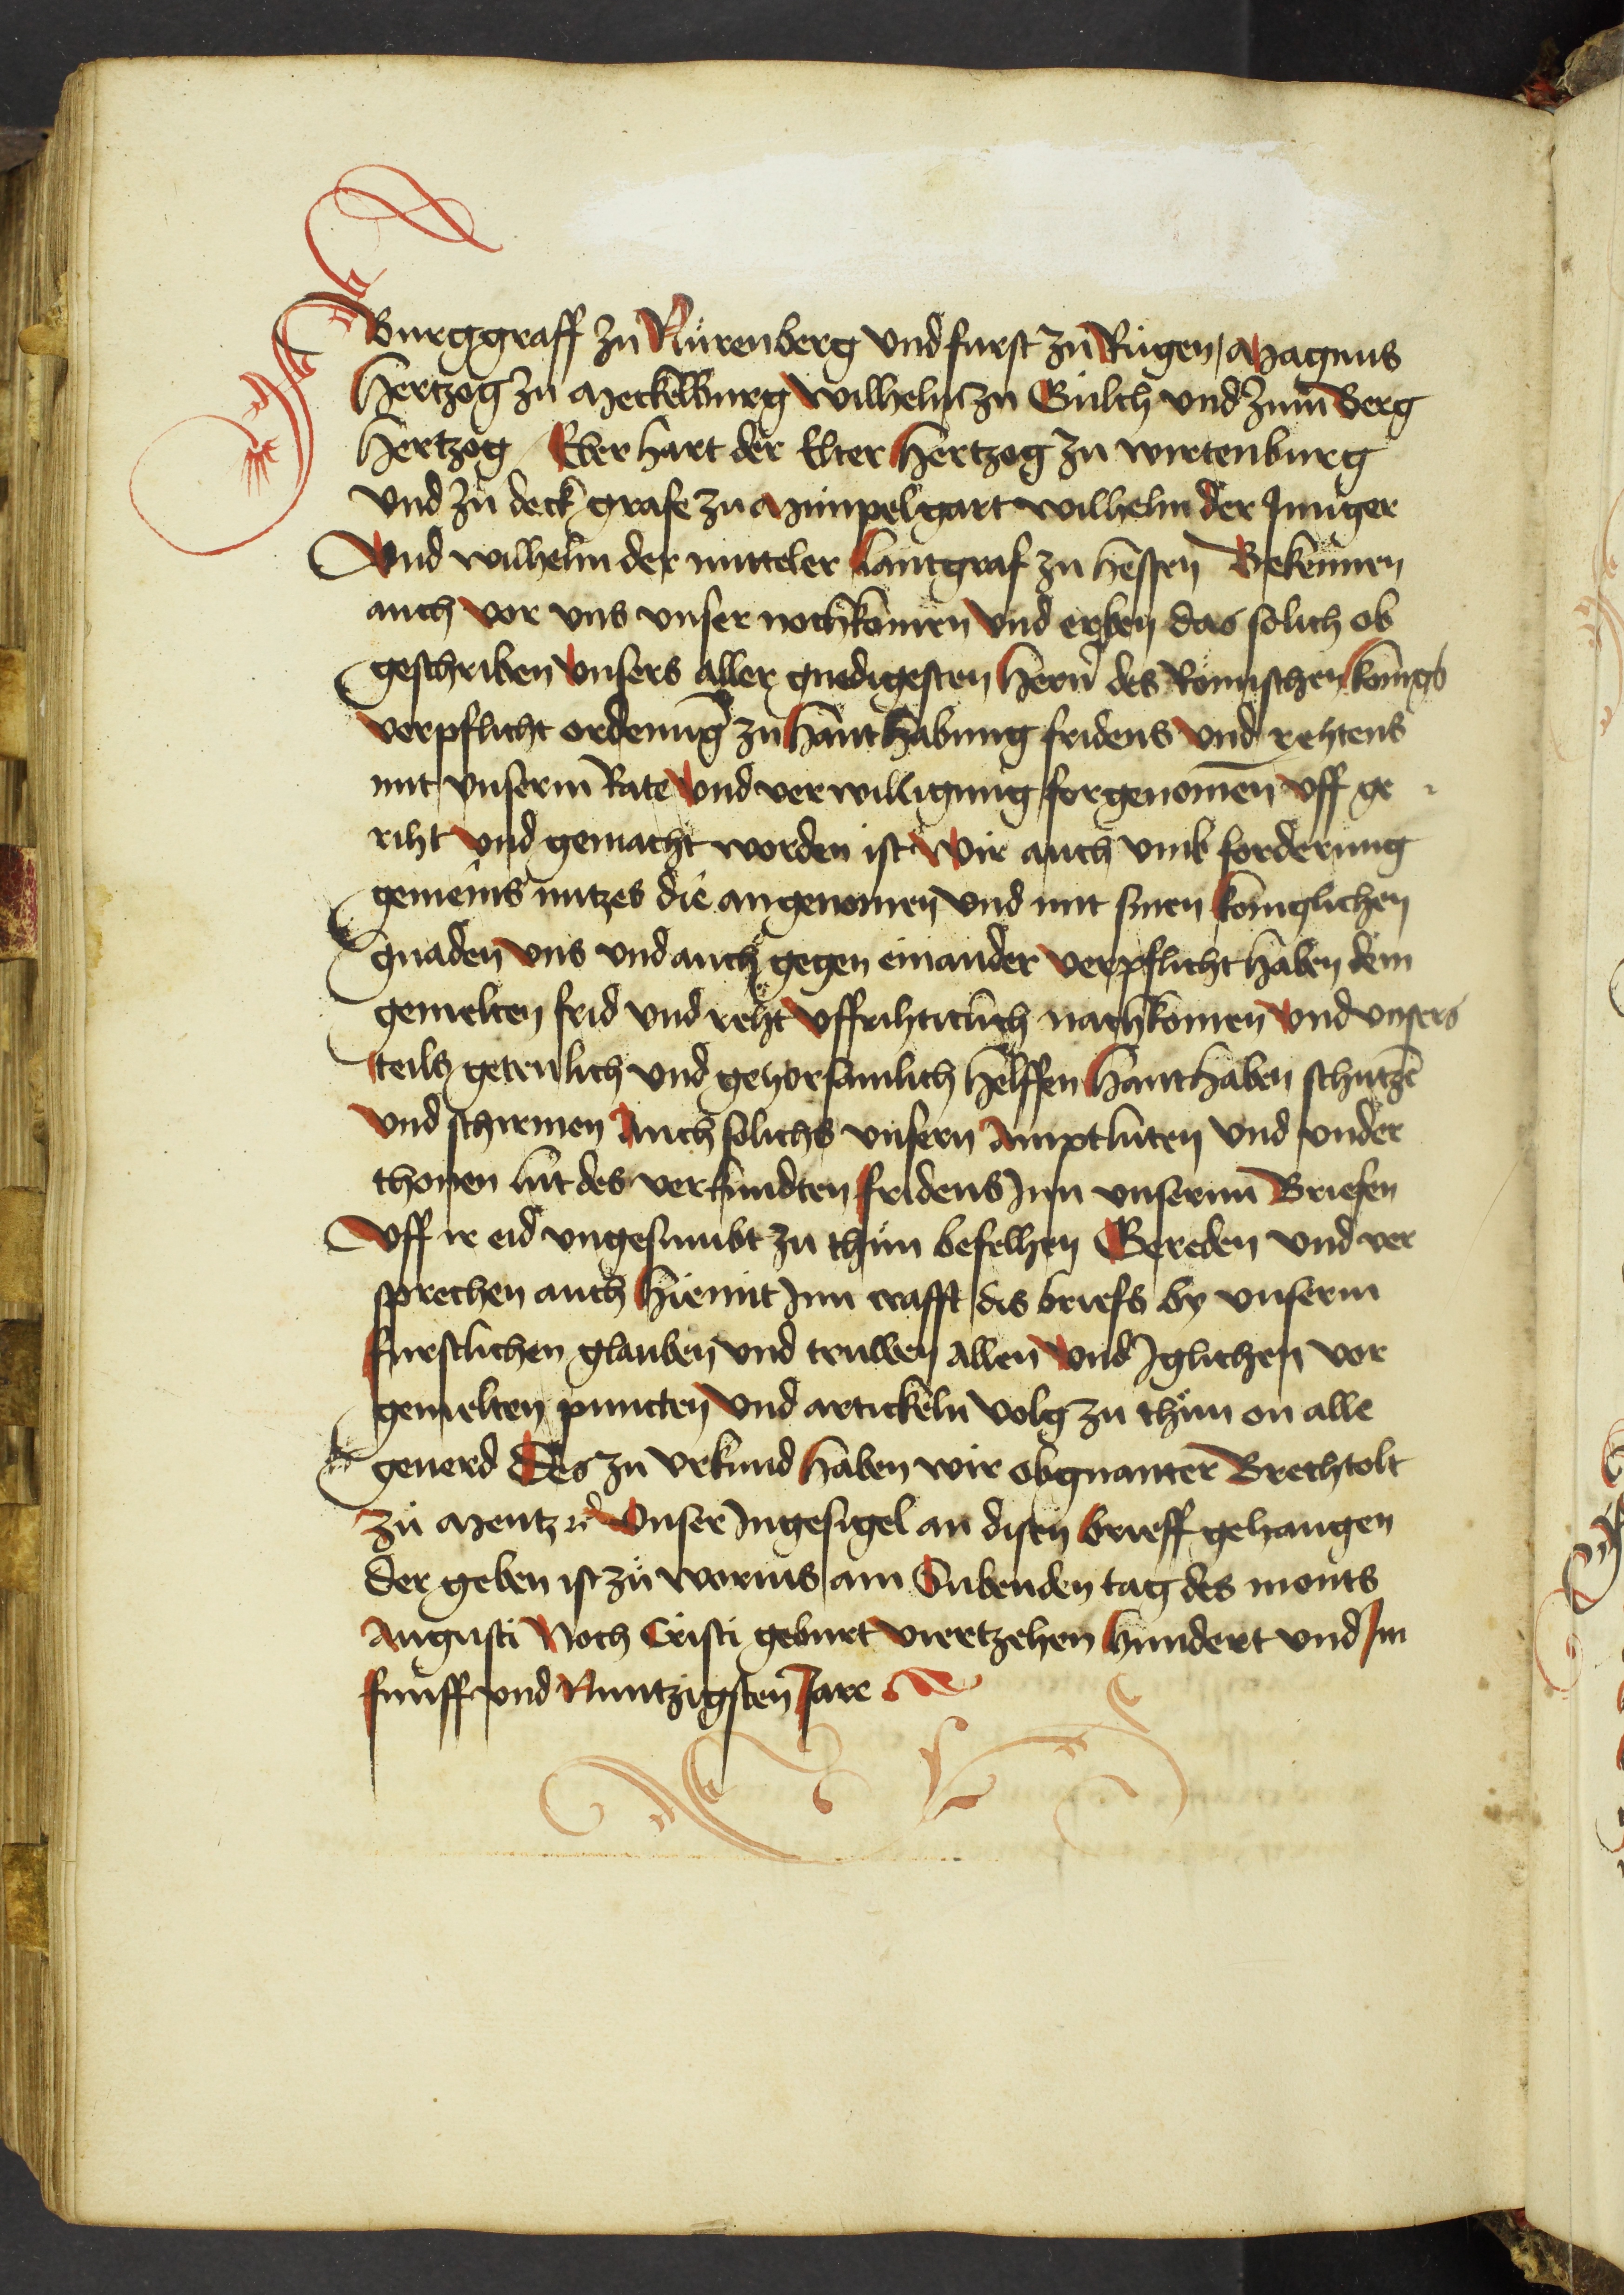 Burggraff zu Nürenberg vnd furst zu Rügen Magnus
Hertzog zu Meckelburg Wilhelm zu Gülch vnd zum Berg
Hertzog Eberhart der Elter Hertzog zu wirtenburg
vnd zu deck grafe zu Mümpelgart wilhelm der Junger
Vnd wilhelm der mitteler Lantgraf zu hessen Bekennen
auch vor vns vnser nochkomen vnd erben das solich ob
geschriben vnsers aller gnedigesten Hern des Romischen konigs
verpflicht ordenung zu Hanthabung fridens vnd rehtens
mit vnserm Rate vnd verwilligung forgenomen vff ge
riht vnd gemacht worden ist Wir auch vmb forderung
gemeins nutzes die angenomen vnd mit sinen koniglichen
gnaden vns vnd auch gegen einander verpflicht haben dem
gemelten frid vnd reht vffrihticlich nachkomen vnd vnsers
teils getrulich vnd gehorsamlich helffen Hanthaben schutzen
vnd schirmen Auch solichs vnsern Amptluten vnd vnder
thonen lut des verkundten fridens Jnn vnserm Briefen
vff ir eid vngesumbt zu thün befelhen Gereden vnd ver
sprechen auch Hiemit Jnn crafft dis briefs by vnserm
furstlichen glauben vnd truwen Allen vnd Jglichen vor
gemelten puncten vnd artickeln volg zu thün on alle
geuerd Des zu vrkund Haben wir obgnanter Brechtolt
zu Mentz rc Vnser Jngesigel an disen Brieff gehangen
der geben ist zu worms am Sübenden tag des monts
Augusti Noch Cristi geburt viertzehen Hundert vnd Jm
funff vnd Nuntzigsten Jare